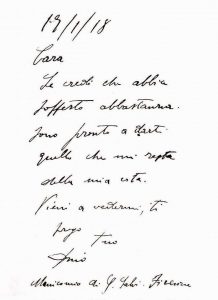 19/1/18
Cara
Se credi che abbia
sofferto abbastanza.
sono pronto a darti
quello che mi resta
della mia vita.
Vieni a vedermi, ti
prego
tuo
Dino
Manicomio di S. Salvi - Firenze